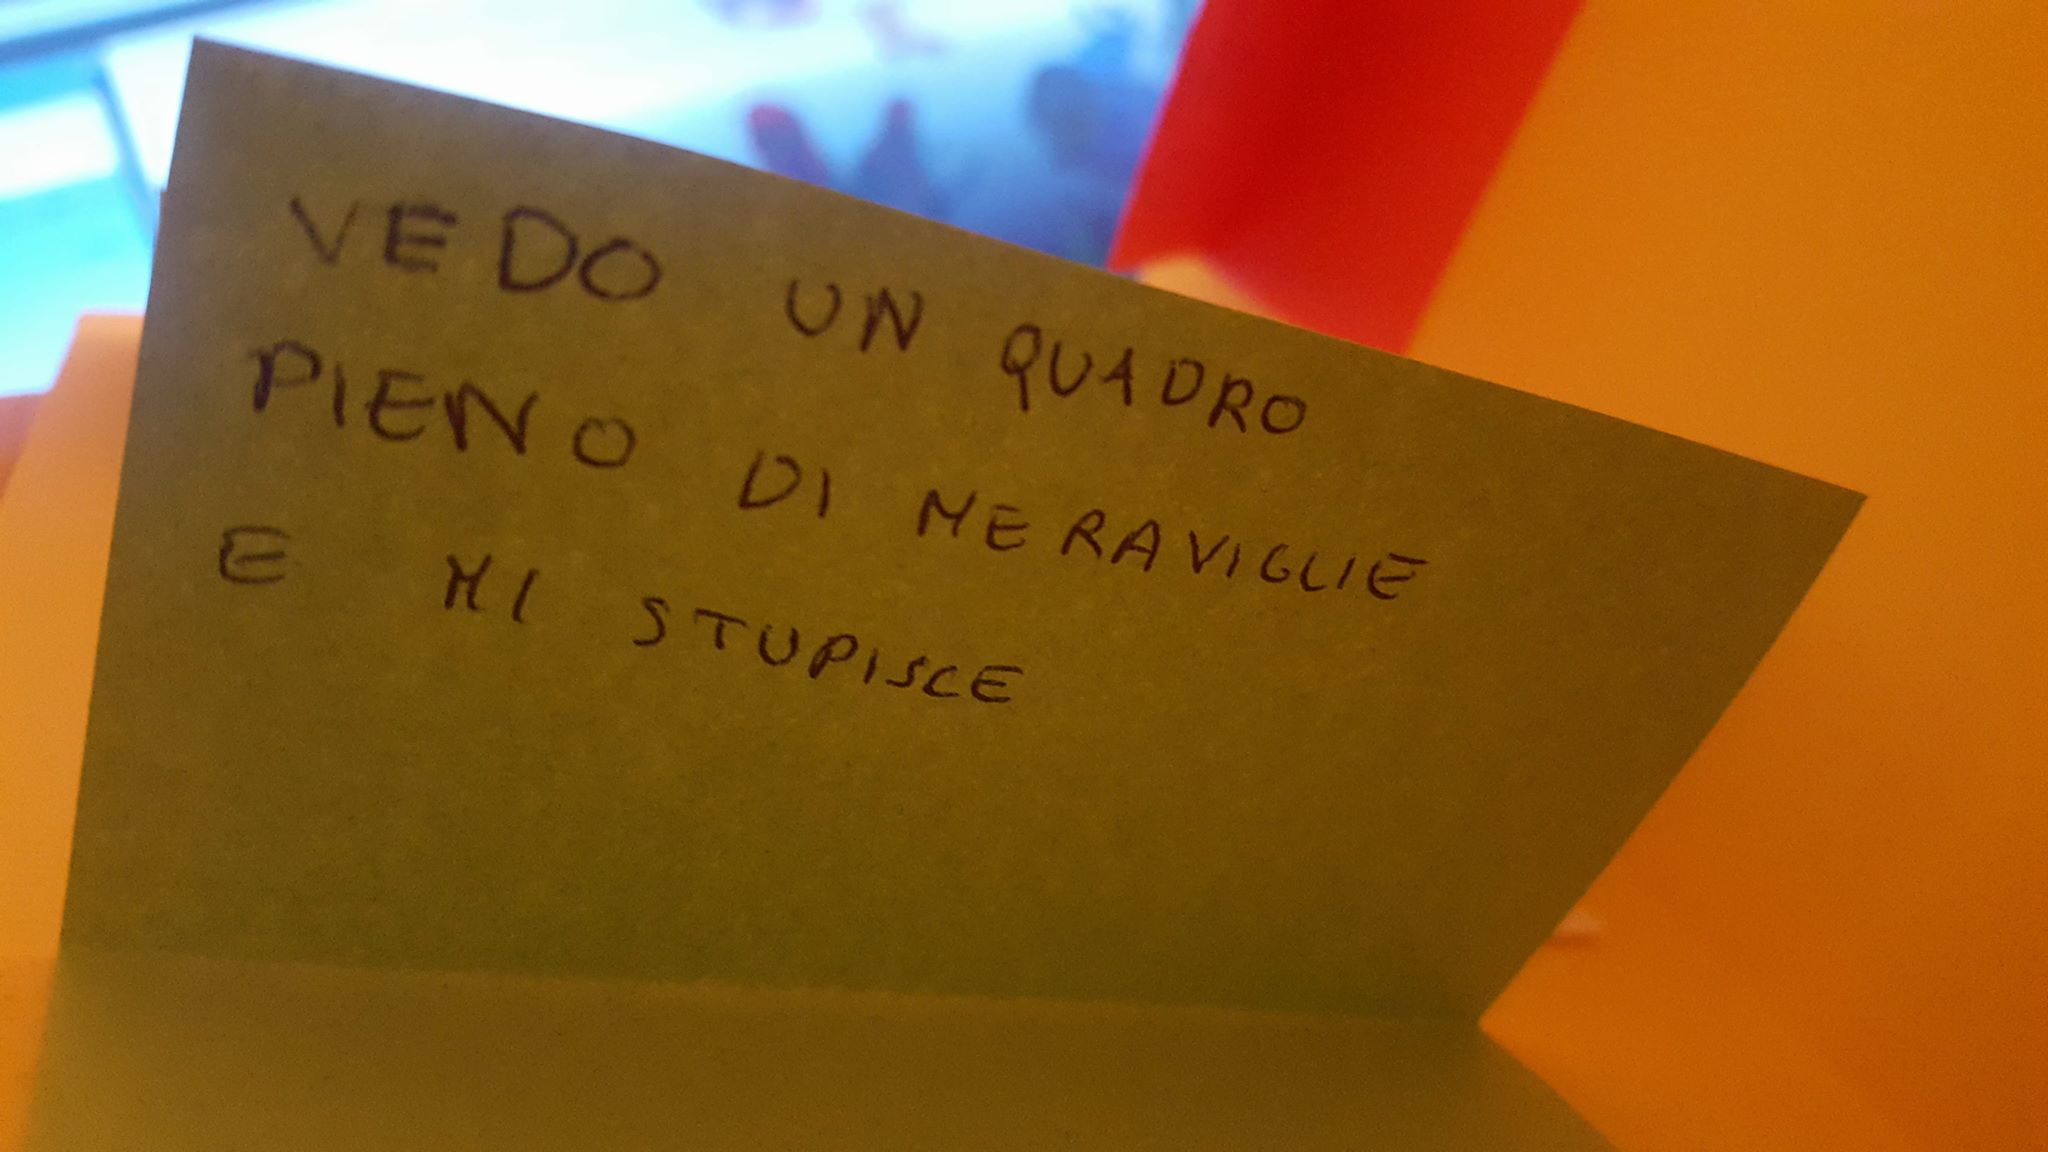 VEDO UN QUADRO
PIENO DI MERAVIGLIE
E MI STUPISCE